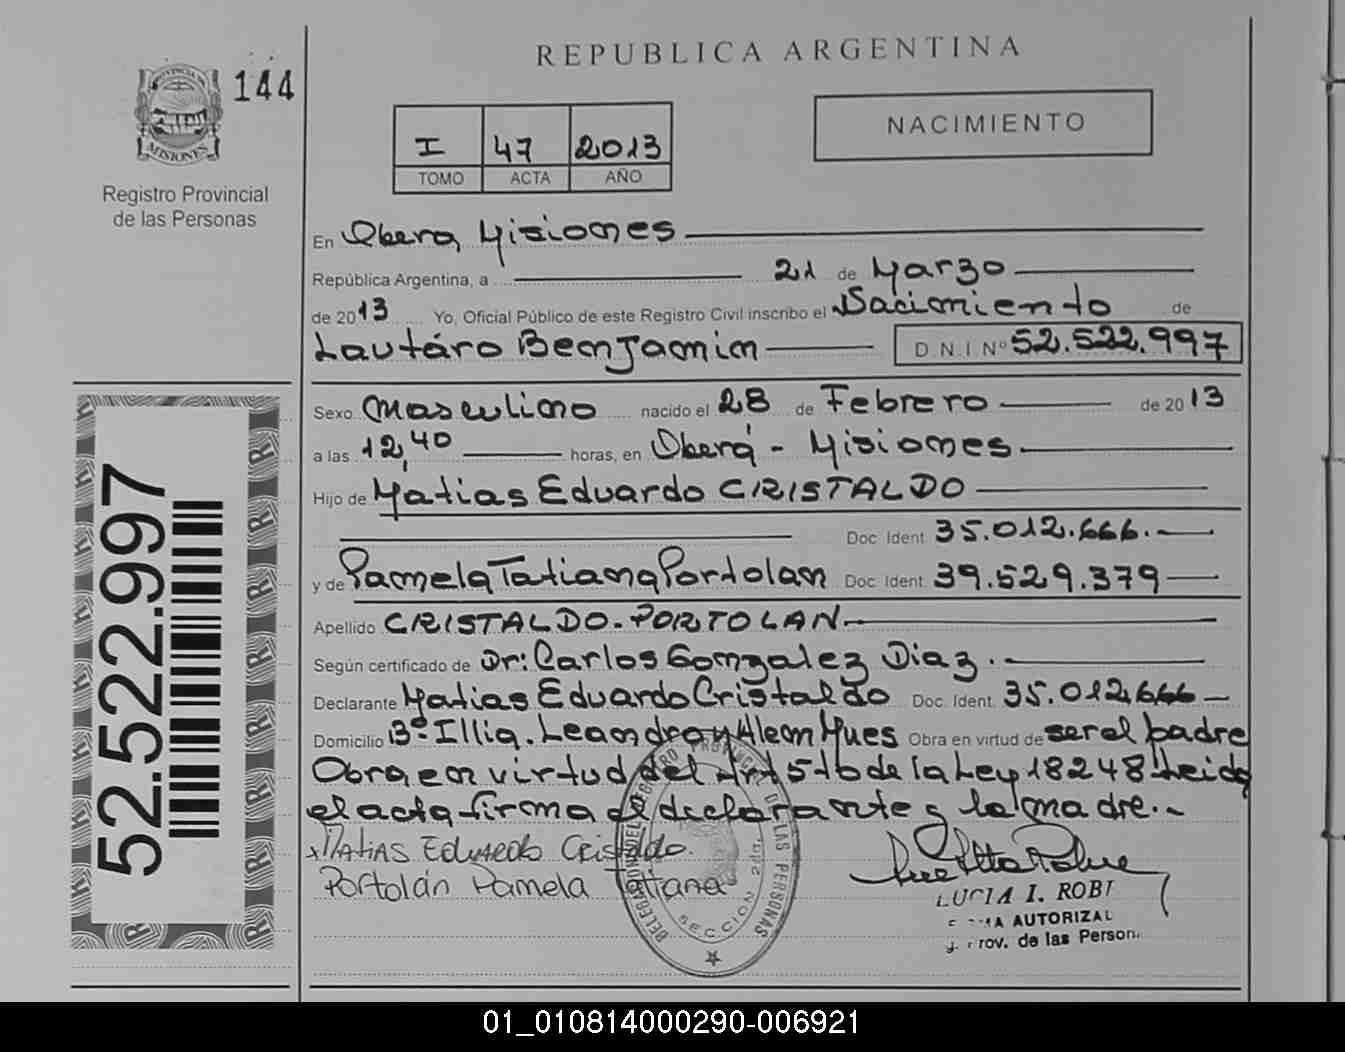 REPUBLICA ARGENTINA
144
NACIMIENTO
I 47 2013
TOMO ACTA AÑO
MISIONES
Registro Provincial
de las Personas
En Obera, Misiones
República Argentina, a 21 de Marzo
de 2013 Yo, Oficial Público de este Registro Civil inscribo el Nacimiento de
Lautáro Benjamin D.N.I. Nº 52.522.997
Sexo Masculino nacido el 28 de Febrero de 2013
a las 12,40 horas, en Oberá - Misiones
Hijo de Matias Eduardo CRISTALDO
Doc. Ident. 35.012.666.
y de Pamela Tatiana Portolan Doc. Ident. 39.529.379
Apellido CRISTALDO-PORTOLAN
Según certificado de Dr: Carlos Gonzalez Diaz.
Declarante Matias Eduardo Cristaldo Doc. Ident. 35.012.666
Domicilio Bº Illia. Leandro N Alem Mnes Obra en virtud de ser el padre
Obra en virtud del Art 5to de la Ley 18248 Leida
el acta firma el declarante y la madre.
Matias Eduardo Cristaldo.
Portolán Pamela Tatiana
PROVINCIAL DE LAS PERSONAS
SECCION
LUCIA I. ROB
AUTORIZA
rov. de las Person
52.522.997
01_010814000290-006921